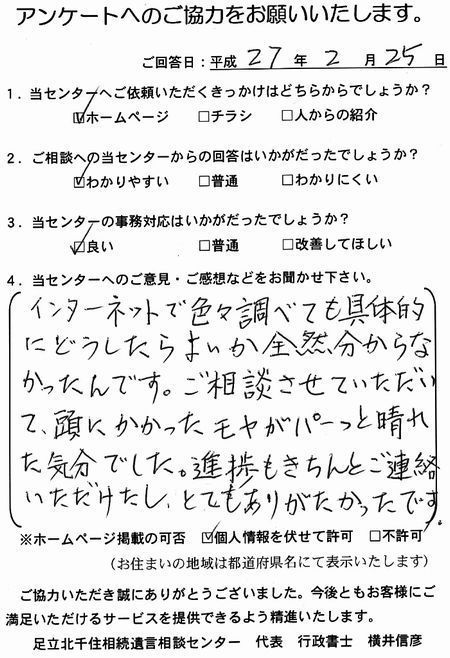 アンケートへのご協力をお願いいたします。
ご回答日:平成 27 年 2 月 25 日
1.当センターへご依頼いただくきっかけはどちらからでしょうか?
☑ホームページ □チラシ □人からの紹介
2.ご相談への当センターからの回答はいかがだったでしょうか?
☑わかりやすい □普通 □わかりにくい
3.当センターの事務対応はいかがだったでしょうか?
☑良い □普通 □改善してほしい
4.当センターへのご意見・ご感想などをお聞かせ下さい。
インターネットで色々調べても具体的
にどうしたらよいか全然分からな
かったんです。ご相談させていただい
て、頭にかかったモヤがパーっと晴れ
た気分でした。進捗もきちんとご連絡
いただけたし、とてもありがたかったです。
※ホームページ掲載の可否 ☑個人情報を伏せて許可 □不許可
(お住まいの地域は都道府県名にて表示いたします)
ご協力いただき誠にありがとうございました。今後ともお客様にご
満足いただけるサービスを提供できるよう精進いたします。
足立北千住相続遺言相談センター 代表 行政書士 横井信彦